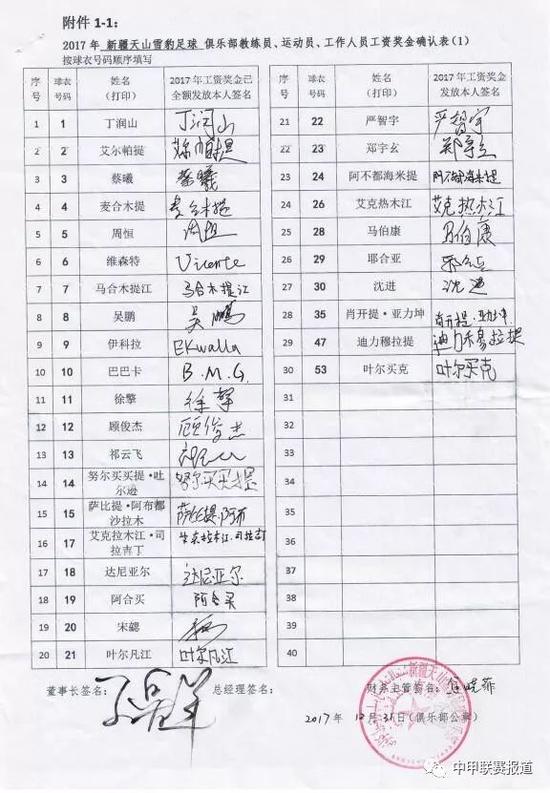 附件 1-1：
2017 年 新疆天山雪豹足球 俱乐部教练员、运动员、工作人员工资奖金确认表（1）
按球衣号码顺序填写
序号 球衣号码 姓名（打印） 2017 年工资奖金已全额发放本人签名
1 1 丁润山 丁润山
2 2 艾尔帕提 艾尔帕提
3 3 蔡曦 蔡曦
4 4 麦合木提 麦合木提
5 5 周恒 周恒
6 6 维森特 Vicente
7 7 马合木提江 马合木提江
8 8 吴鹏 吴鹏
9 9 伊科拉 EKwalla
10 10 巴巴卡 B.M.G.
11 11 徐擎 徐擎
12 12 顾俊杰 顾俊杰
13 13 祁云飞
14 14 努尔买买提·吐尔逊 努尔买买提
15 15 萨比提·阿布都沙拉木 萨比提·阿布
16 17 艾克拉木江·司拉吉丁
17 18 达尼亚尔 达尼亚尔
18 19 阿合买 阿合买
19 20 宋勰
20 21 叶尔凡江 叶尔凡江
序号 球衣号码 姓名（打印） 2017 年工资奖金发放本人签名
21 22 严智宇 严智宇
22 23 郑宇玄
23 24 阿不都海米提 阿不都海米提
24 26 艾克热木江 艾克热木江
25 28 马伯康 马伯康
26 29 耶合亚
27 30 沈进 沈进
28 35 肖开提·亚力坤 肖开提·亚力坤
29 47 迪力穆拉提 迪力木拉提
30 53 叶尔买克 叶尔买克
31
32
33
34
35
36
37
38
39
40
董事长签名： 总经理签名： 财务主管签名：
2017 年 12 月 31 日（俱乐部公章）
新疆天山
中甲联赛报道